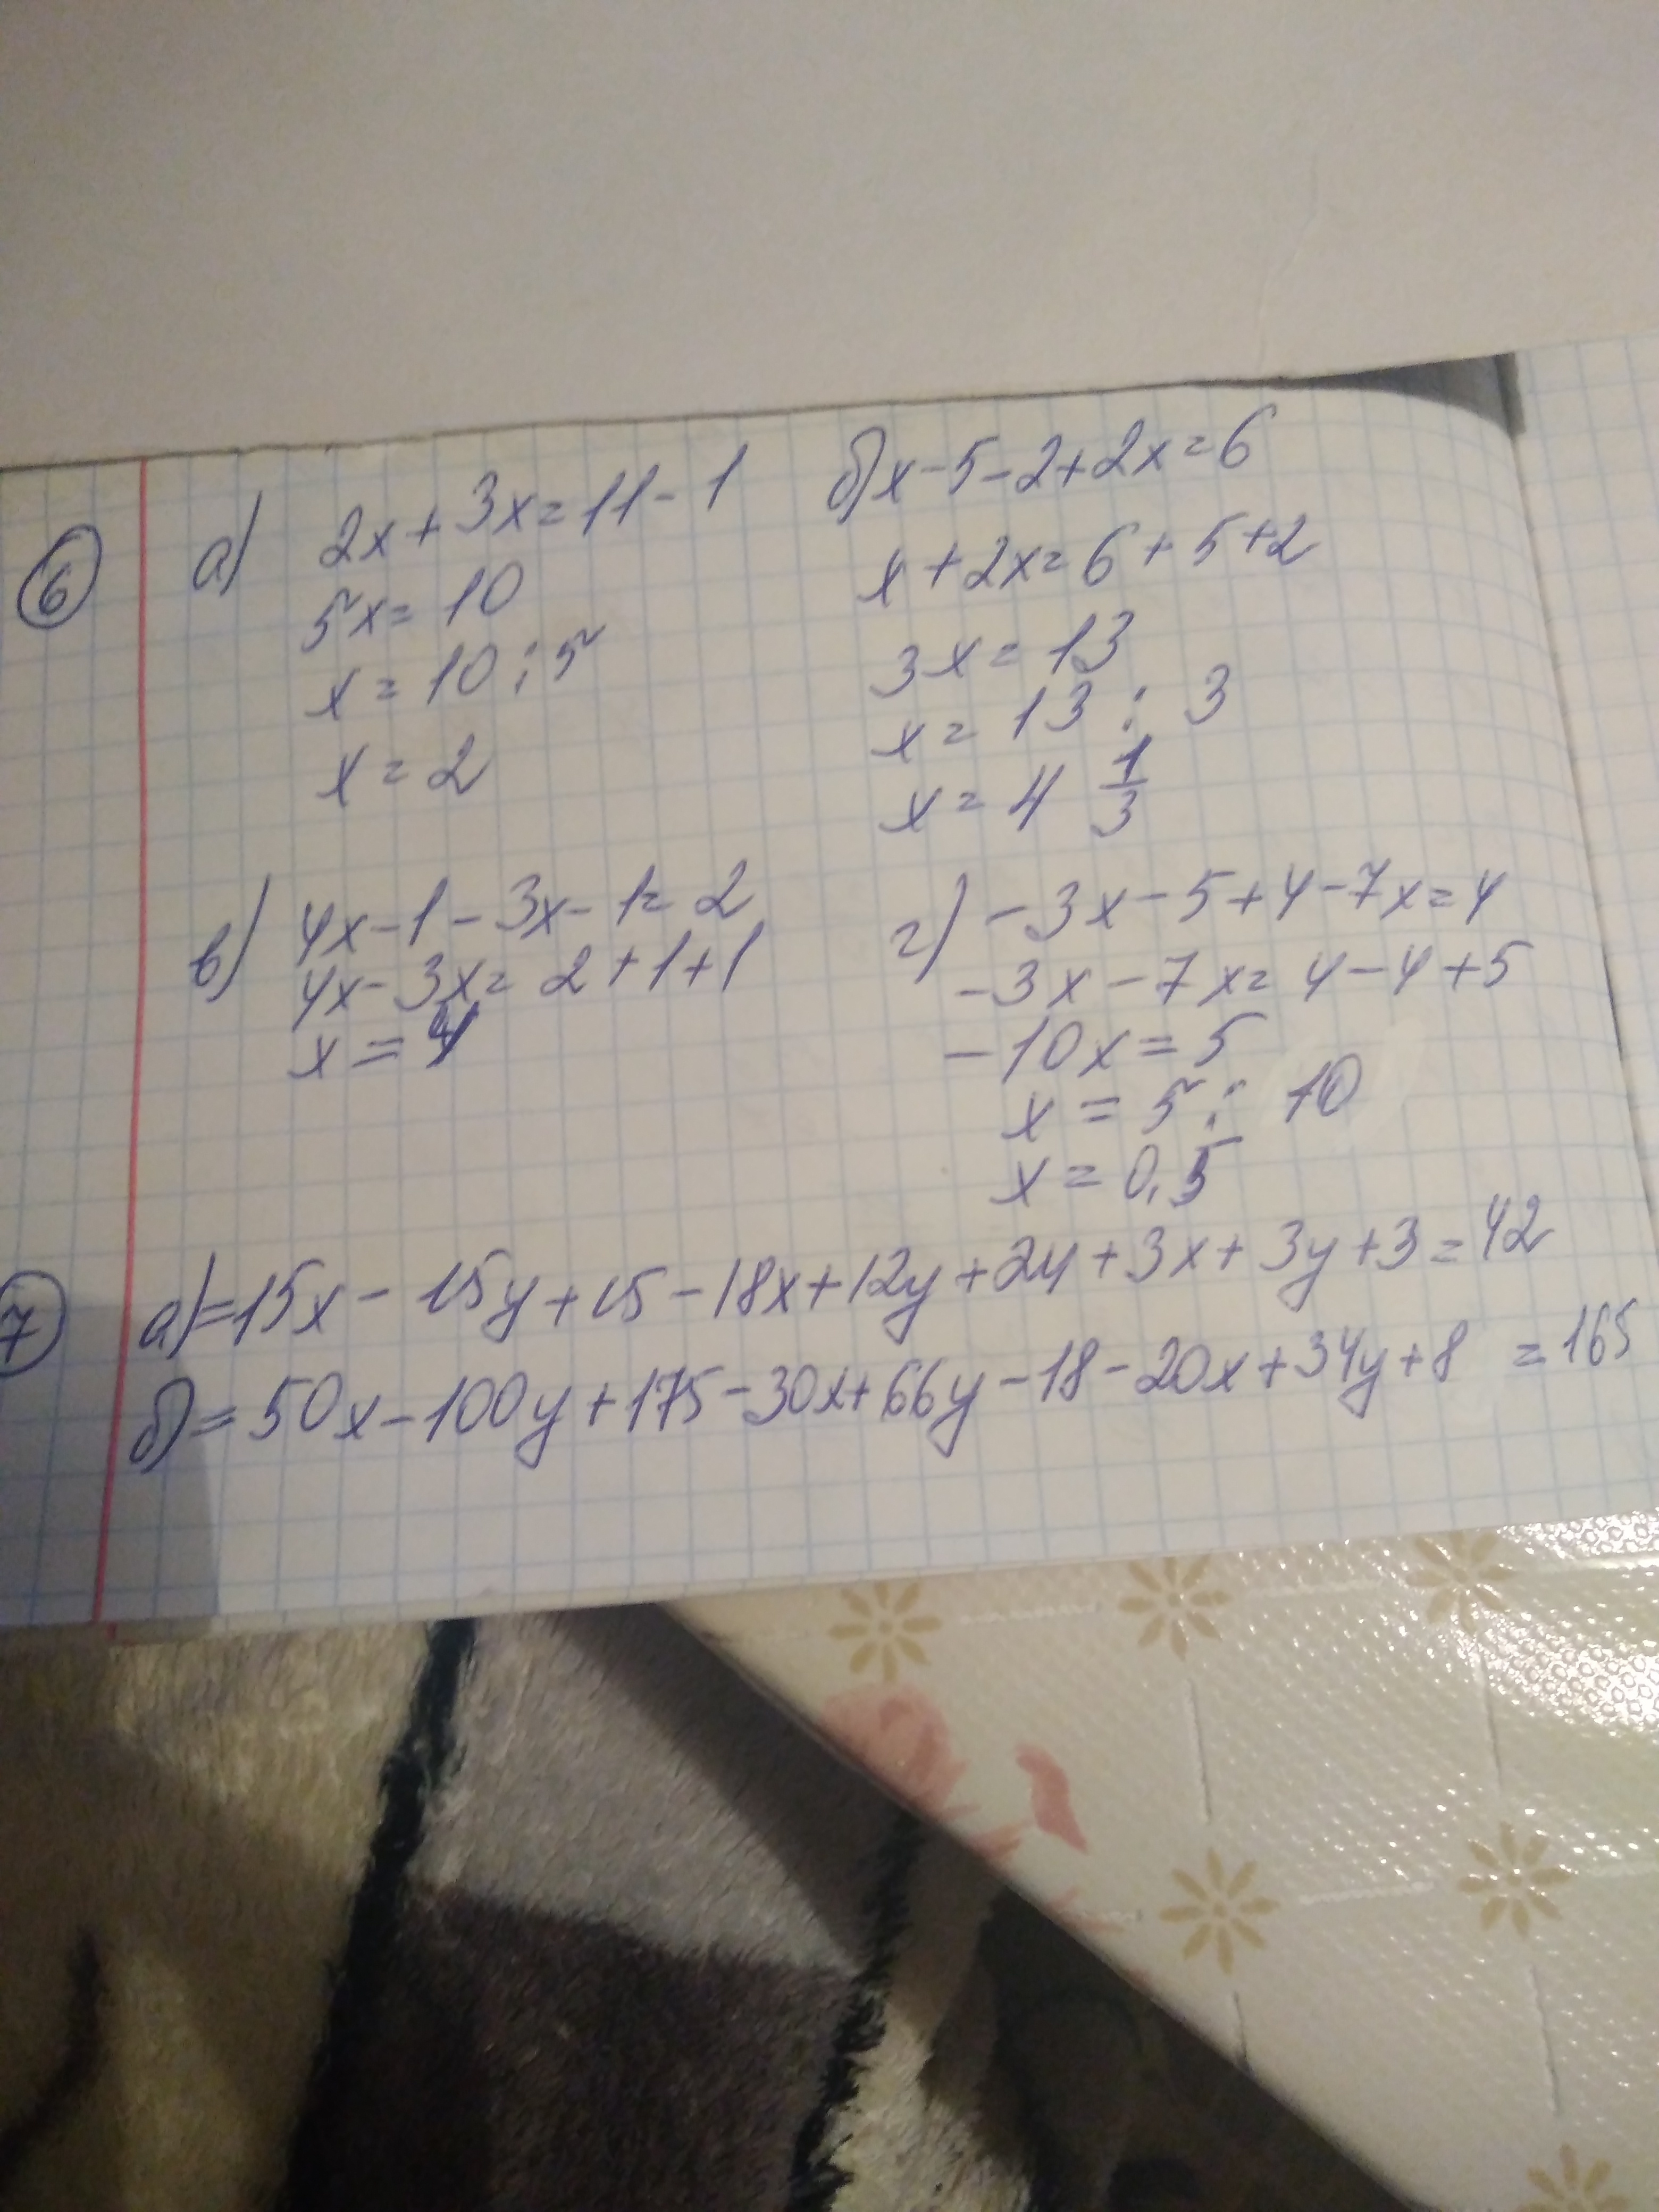 6
а) 2x + 3x = 11 - 1
5x = 10
x = 10 : 5
x = 2
б) x - 5 - 2 + 2x = 6
x + 2x = 6 + 5 + 2
3x = 13
x = 13 : 3
x = 4 1/3
в) 4x - 1 - 3x - 1 = 2
4x - 3x = 2 + 1 + 1
x = 4
г) - 3x - 5 + 4 - 7x = 4
- 3x - 7x = 4 - 4 + 5
- 10x = 5
x = 5 : 10
x = 0,5
7
а) = 15x - 15y + 15 - 18x + 12y + 24 + 3x + 3y + 3 = 42
б) = 50x - 100y + 175 - 30x + 66y - 18 - 20x + 34y + 8 = 165